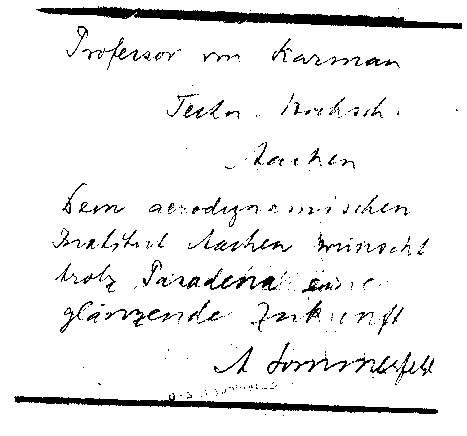 Professor von Karman
Techn. Hochsch.
Aachen
Dem aerodynamischen
Institut Aachen wünscht
trotz Pasadena eine
glänzende Zukunft
A Sommerfeld